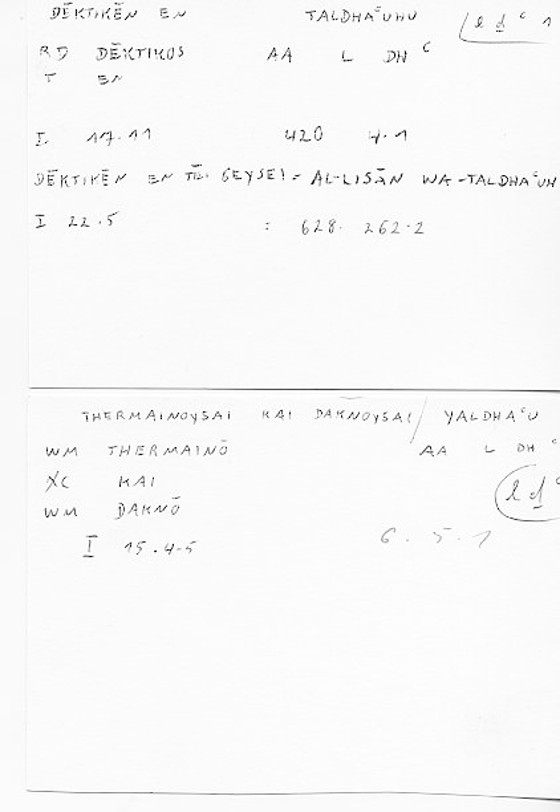 DĒKTIKĒN EN TALDHAᶜUHU l ḏ ᶜ 1
RD DĒKTIKOS AA L DH ᶜ
T EN
I 17.11 420 4.1
DĒKTIKĒN EN TĒI GEYSEI = AL-LISĀN WA-TALDHAᶜUH
I 22.5 : 628. 262.2
THERMAINOYSAI KAI DAKNOYSAI / YALDHAᶜU
WM THERMAINŌ AA L DH ᶜ
XC KAI l ḏ ᶜ
WM DAKNŌ
I 15.4-5 6.5.1